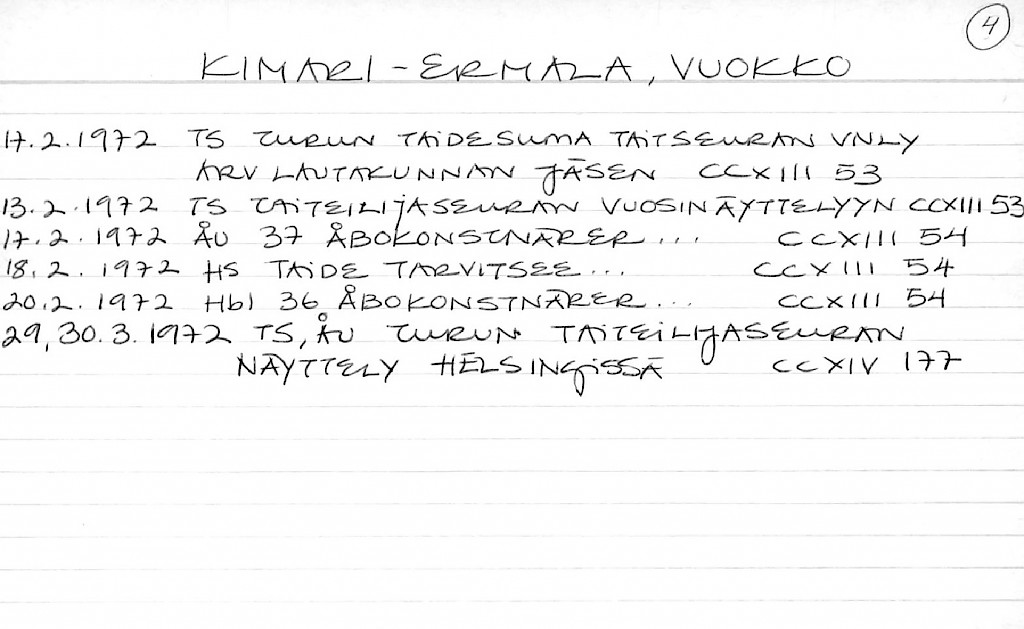 4
KIMARI-ERMALA, VUOKKO
17.2.1972 TS TURUN TAIDESUMA TAITSEURAN VNLY
ARV LAUTAKUNNAN JÄSEN CCXIII 53
13.2.1972 TS TAITEILIJASEURAN VUOSINÄYTTELYYN CCXIII 53
17.2.1972 ÅU 37 ÅBOKONSTNÄRER... CCXIII 54
18.2.1972 HS TAIDE TARVITSEE... CCXIII 54
20.2.1972 Hbl 36 ÅBOKONSTNÄRER... CCXIII 54
29,30.3.1972 TS, ÅU TURUN TAITEILIJASEURAN
NÄYTTELY HELSINGISSÄ CCXIV 177